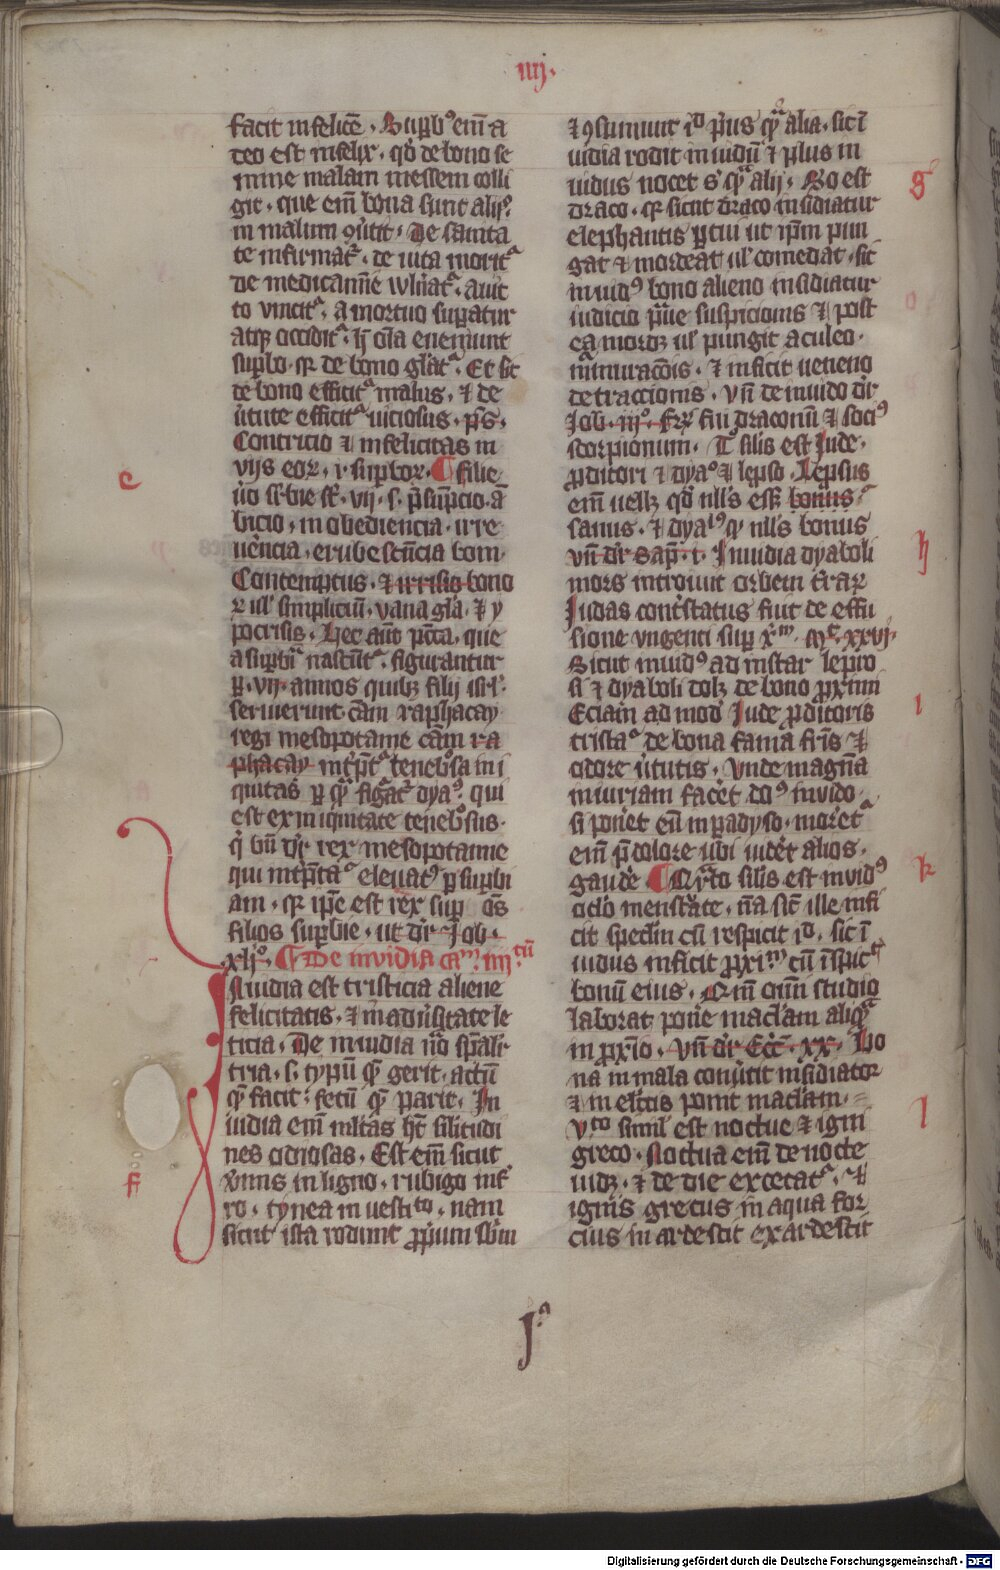 iiij.
facit infelicē. Suꝑbꝰ em̄ a
deo est infelix. qd̓ de bono se
mine malam messem colli
git. que em̄ bona sunt alijsꝰ
in malum ꝯũtit. De sanita
te infirmat᷑. de uita morit᷑
de medicamīe wln̄at᷑. a uic
to vincit᷑. a mortuo suꝑatur
atqꝫ occidit᷑. h̄ om̄ia eueniunt
suꝑbo. qꝛ de bono gl̓at᷑. Et sic
de bono efficit᷑ malus. ⁊ de
ũtute efficit᷑ uiciosus. ps̄.
Contricio ⁊ infelicitas in
vijs eoꝝ. i. suꝑboꝝ. ¶ filie
ũo suꝑbie st̄. vij. s. p̄sūpcio. ā
bicio. inobediencia. irre
uerencia. erubescēncia boni.
Contemptus. ⁊ irrisio bono
ꝝ ul̓ simpliciū. vana gl̓a. ⁊ y
pocrisis. hec aūt pc̄ca. que
a suꝑbia nascūt᷑. figurantur
ꝑ. vij. annos quibꝫ filij isr̄l̓.
seruierunt. cām raphacay
regi mesopotamie cām ra
phacay. int̓p̄t᷑ tenebrosa ini
quitas ꝑ quē figr̄at᷑ dyaꝰ. qui
est ex iniquitate tenebrosus.
q̓ bn̄ dr̄ rex mesopotamie
qui int̓p̄tat᷑ eleuatꝰ ꝑ suꝑbi
am. qꝛ ip̄e est rex suꝑ om̄s
filios suꝑbie. ut dr̄ Job.
xlj°. ¶ De invidia caᵐ. iiijᵗᵘᵐ
Inuidia est tristicia aliene
felicitatis. ⁊ in aduersitate le
ticia. De inuidia ũo sp̄alit̓
tria. s. typū quē gerit. actū
quē facit. fetū quē parit. In
uidia em̄ ml̓tas ht̄ similitudi
nes odiosas. Est em̄ sicut
ũmis in ligno. rubigo in fer
ro. tynea in uestito. nam
sicut ista rodunt ꝓprium sbīm
e
f
⁊ ꝯsumunt id̓ prius quā alia. sic ī
uidia rodit inuidū ⁊ plus in
uidus nocet s̓ quā alij. Sō est
draco. qꝛ sicut draco insidiatur
elephantis ꝑtui ut ip̄m pun
gat ⁊ mordeat ul̓ comedat. sic
inuidꝰ bono alieno insidiatur
iudicio praue suspicionis ⁊ post
ea mordꝫ ul̓ pungit aculeo.
murmuracōnis. ⁊ inficit ueneno
detraccionis. Vn̄ de inuido dr̄
Job. iij°. fr̄ fui draconū ⁊ sociꝰ
scorpionum. T̓ silis est Jude.
ꝓditori ⁊ dyaꝰ ⁊ lepso. lepsus
em̄ uellꝫ qd̓ nll̓s esſꝫ bonus
sanus. ⁊ dyalꝰ qd̓ nll̓s bonus
vn̄ dr̄ Sap̄. i. Inuidia dyaboli
mors introiuit orbem t̓raꝝ
Judas contristatus fuit de effu
sione vngenti suꝑ x̄ᵐ. Mᵗ. xxvi.
Sicut inuidꝰ ad instar lepro
si ⁊ dyaboli dolꝫ de bono ꝓximi
Eciam ad modū Jude ꝓditoris
tristat᷑ de bona fama fr̄is ⁊
odore ũtutis. Vnde magnā
iniuriam facēt dōꝰ inuido.
si ponēt eū in paradyso. morēt᷑
em̄ p̄ dolore ubi uidēt alios.
gaudē. ¶ Quarto silis est inuidꝰ
oclo menstrate. nā sic̄ ille infi
cit spec̄lm cū respicit id̓. sic ī
uidus inficit ꝓximᵐ cū īspicit
bonū eius. Qm̄ om̄i studio
laborat poñe maclam aliquā
in ꝓxīo. Vn̄ dr̄ Ecc̄. xx. Bo
na in mala conũtit insidiator
⁊ in elc̄tis ponit maclam.
Vᵗᵒ simil̓ est noctue ⁊ igni
greco. Noctua em̄ de nocte
uidꝫ. ⁊ de die excecat᷑. ⁊
ignis grecus in aqua for
cius in ardescit exardescit
g
h
i
k
l
jᵃ
Digitalisierung gefördert durch die Deutsche Forschungsgemeinschaft - DFG